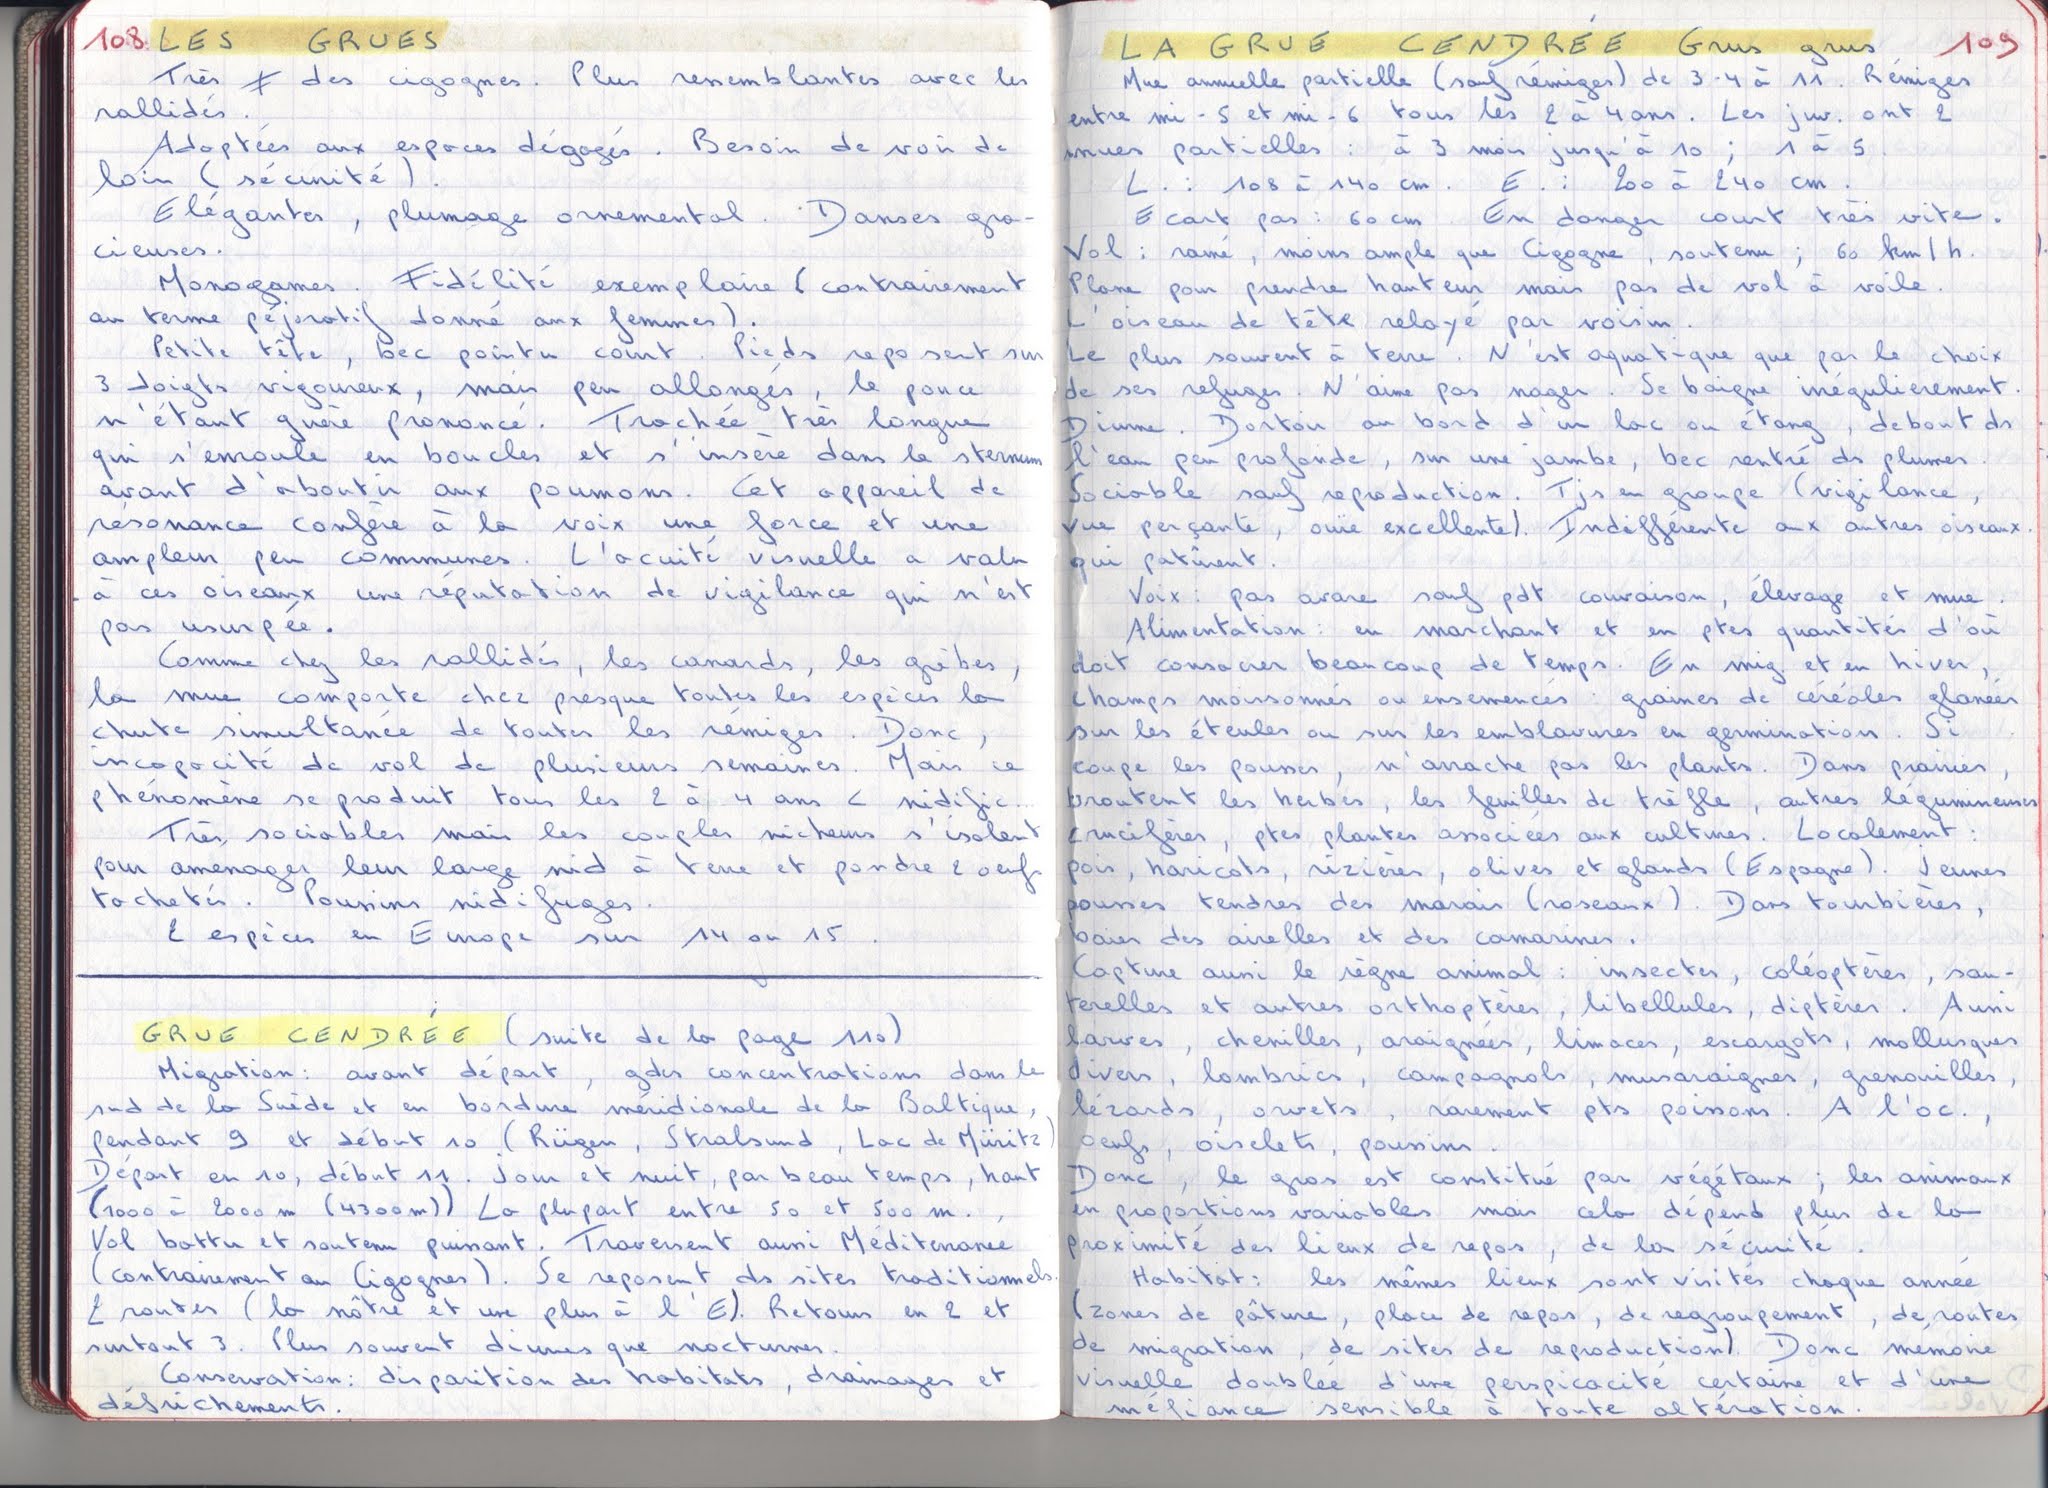 108 LES GRUES
Très ≠ des cigognes. Plus ressemblantes avec les
rallidés.
Adaptées aux espaces dégagés. Besoin de voir de
loin (sécurité).
Elégantes, plumage ornemental. Danses gra-
cieuses.
Monogames. Fidélité exemplaire (contrairement
au terme péjoratif donné aux femmes).
Petite tête, bec pointu court. Pieds reposent sur
3 doigts vigoureux, mais peu allongés, le pouce
n'étant guère prononcé. Trachée très longue
qui s'enroule en boucles et s'insère dans le sternum
avant d'aboutir aux poumons. Cet appareil de
résonance confère à la voix une force et une
ampleur peu communes. L'acuité visuelle a valu
à ces oiseaux une réputation de vigilance qui n'est
pas usurpée.
Comme chez les rallidés, les canards, les grèbes,
la mue comporte chez presque toutes les espèces la
chute simultanée de toutes les rémiges. Donc,
incapacité de vol de plusieurs semaines. Mais ce
phénomène se produit tous les 2 à 4 ans < nidific...
Très sociables mais les couples nicheurs s'isolent
pour amenager leur large nid à terre et pondre 2 oeufs
tachetés. Poussins nidifuges.
2 espèces en Europe sur 14 ou 15.
GRUE CENDRÉE (suite de la page 110)
Migration: avant départ, gdes concentrations dans le
sud de la Suède et en bordure méridionale de la Baltique,
pendant 9 et début 10 (Rügen, Stralsund, Lac de Müritz)
Départ en 10, début 11. Jour et nuit, par beau temps, haut
(1000 à 2000 m (4300m)) La plupart entre 50 et 500 m.,
Vol battu et soutenu puissant. Traversent aussi Méditerranée
(contrairement au Cigognes). Se reposent ds sites traditionnels.
2 routes (la nôtre et une plus à l'E). Retours en 2 et
surtout 3. Plus souvent diurnes que nocturnes.
Conservation: disparition des habitats, drainages et
défrichements.
LA GRUE CENDRÉE Grus grus 109
Mue annuelle partielle (sauf rémiges) de 3-4 à 11. Rémiges
entre mi-5 et mi-6 tous les 2 à 4 ans. Les juv. ont 2
mues partielles : à 3 mois jusqu'à 10 ; 1 à 5.
L. : 108 à 140 cm. E. : 200 à 240 cm.
Ecart pas: 60 cm. En danger court très vite.
Vol : ramé, moins ample que Cigogne, soutenu ; 60 km/h.
Plane pour prendre hauteur mais pas de vol à voile.
L'oiseau de tête relayé par voisin.
Le plus souvent à terre. N'est aquatique que par le choix
de ses refuges. N'aime pas nager. Se baigne irrégulierement.
Diurne. Dortoir au bord d'un lac ou étang, debout ds
l'eau peu profonde, sur une jambe, bec rentré ds plumes.
Sociable sauf reproduction. Tjs en groupe (vigilance,
vue perçante, ouïe excellente). Indifférente aux autres oiseaux
qui patûrent.
Voix : pas avare sauf pdt couvaison, élevage et mue.
Alimentation: en marchant et en ptes quantités d'où
doit consacrer beaucoup de temps. En mig. et en hiver,
champs moissonnés ou ensemencés : graines de céréales glanées
sur les éteules ou sur les emblavures en germination. Si
coupe les pousses, n'arrache pas les plants. Dans prairies,
broutent les herbes, les feuilles de trèfle, autres légumineuses
crucifères, ptes plantes associées aux cultures. Localement :
pois, haricots, rizières, olives et glands (Espagne). Jeunes
pousses tendres des marais (roseaux). Dans tourbières,
baies des airelles et des camarines.
Capture aussi le règne animal : insectes, coléoptères, sau-
terelles et autres orthoptères, libellules, diptères. Aussi
larves, chenilles, araignées, limaces, escargots, mollusques
divers, lombrics, campagnols, musaraignes, grenouilles,
lézards, orvets, rarement pts poissons. A l'oc.,
oeufs, oiselets, poussins.
Donc, le gros est constitué par végétaux ; les animaux
en proportions variables mais cela dépend plus de la
proximité des lieux de repos, de la sécurité.
Habitat: les mêmes lieux sont visités chaque année
(zones de pâture, place de repos, de regroupement, de routes
de migration, de sites de reproduction). Donc mémoire
visuelle doublée d'une perspicacité certaine et d'une
méfiance sensible à toute altération.